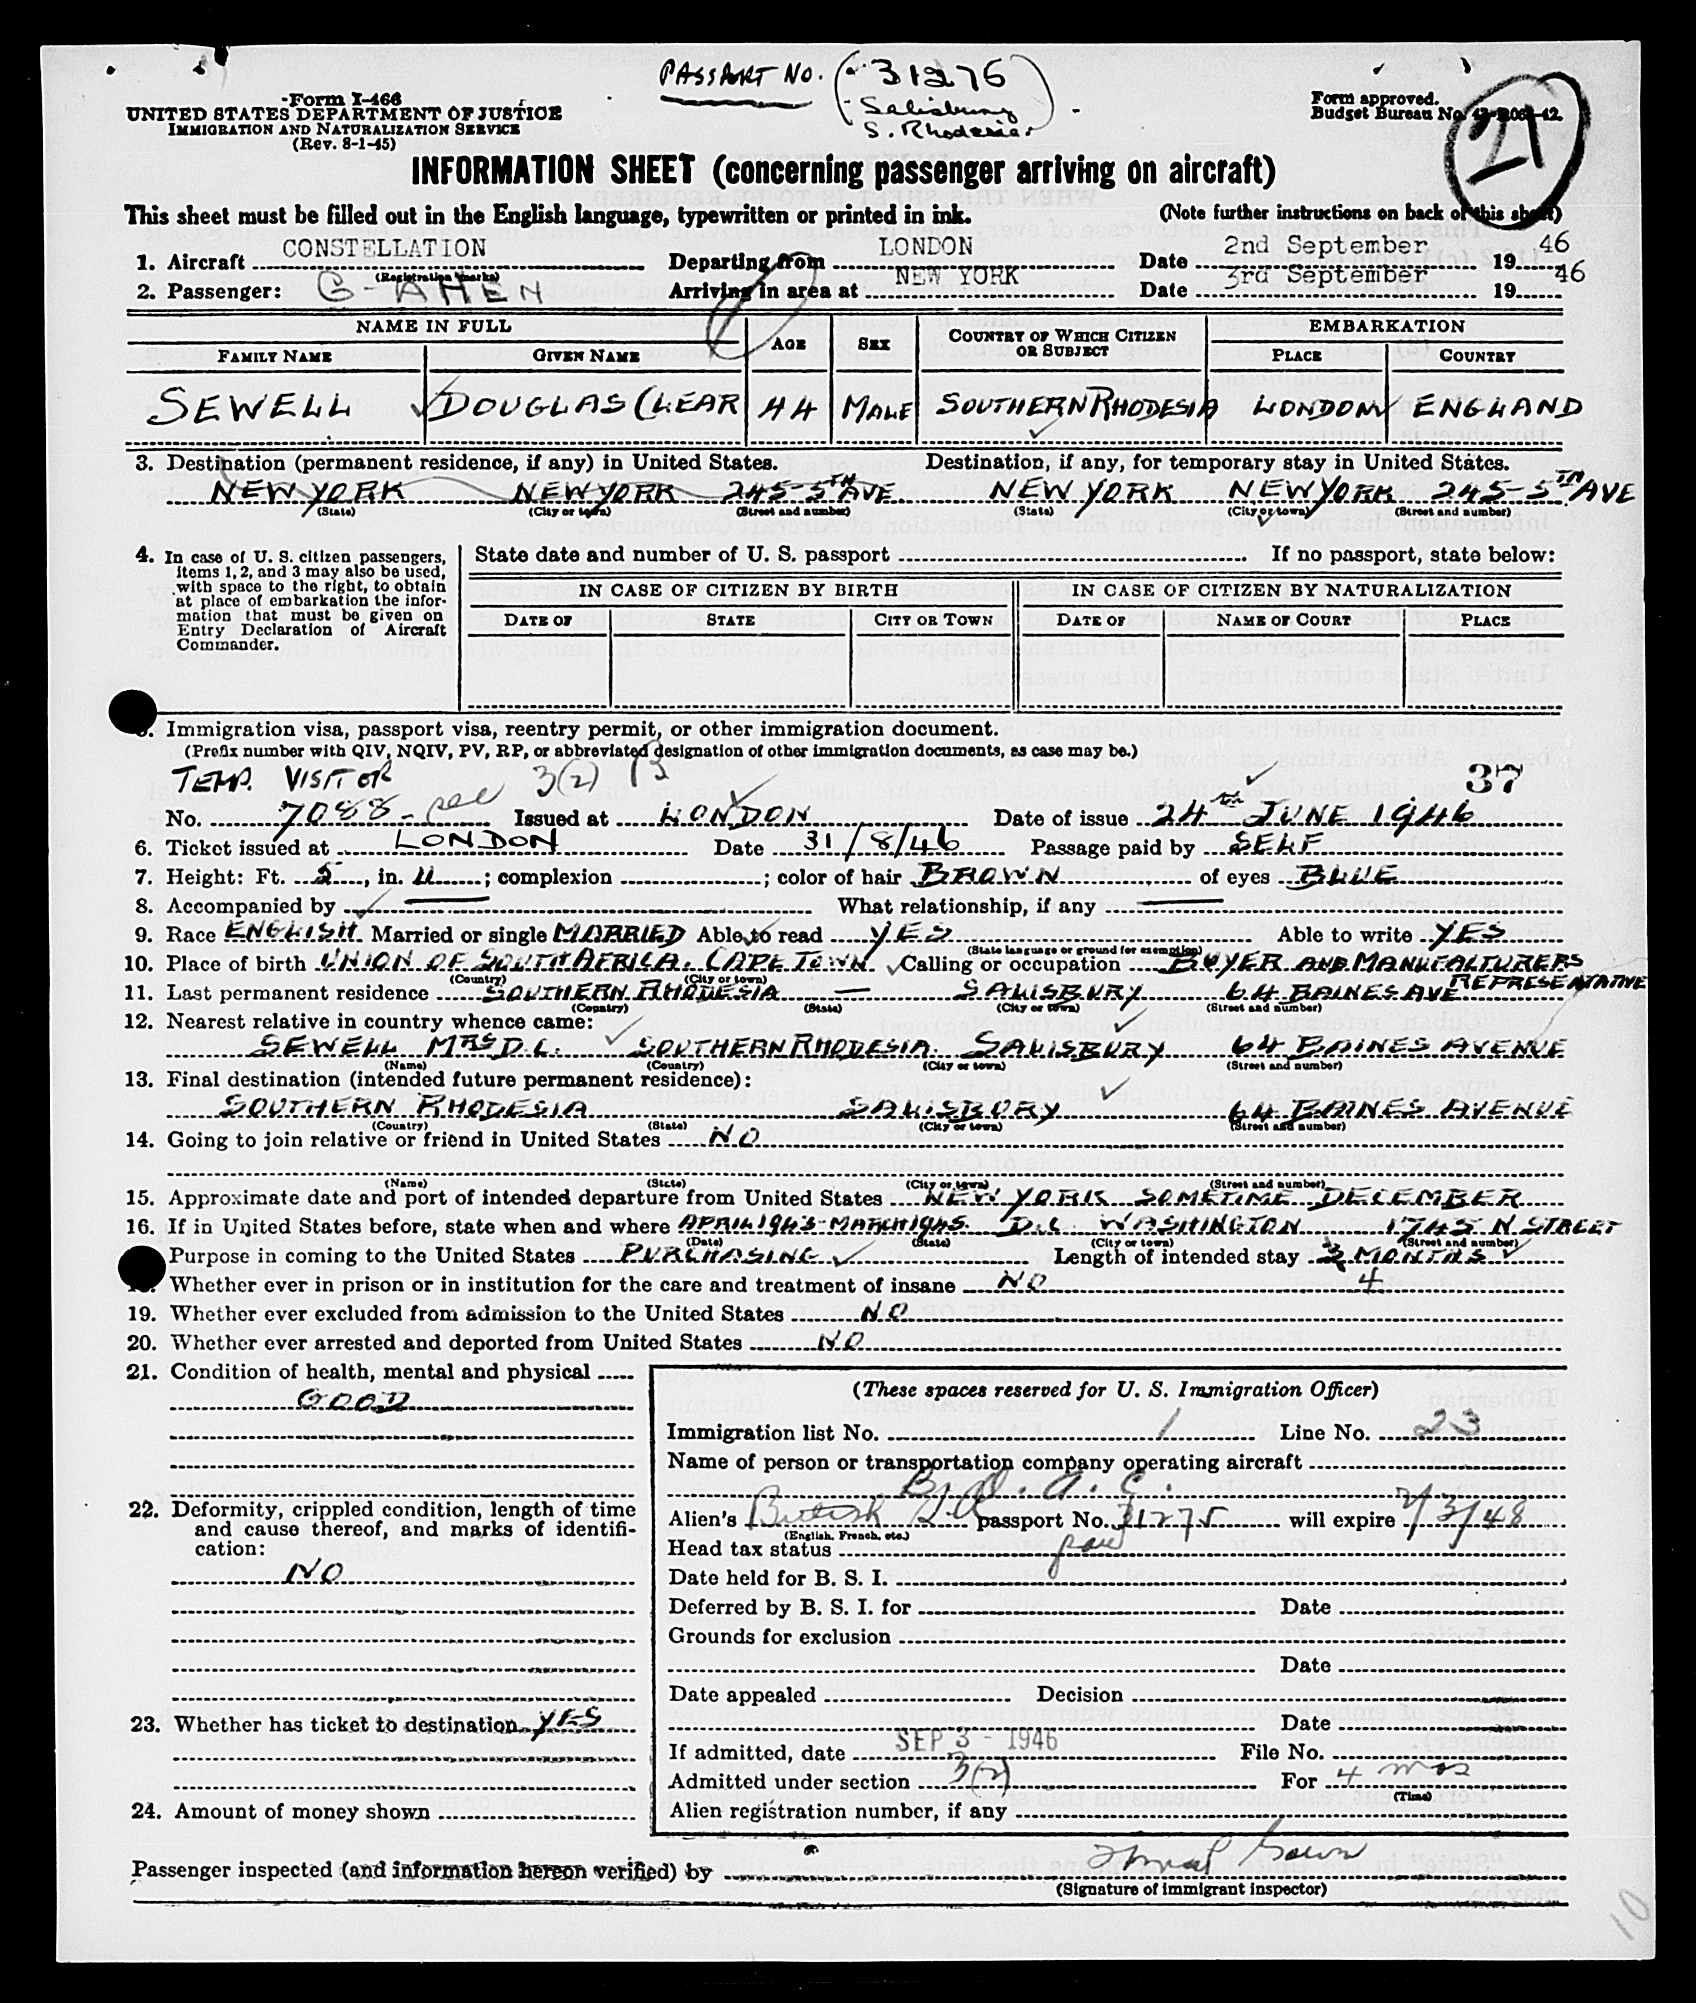 PASSPORT NO. 31276
Salisbury
S. Rhodesia
21
Form I-466
UNITED STATES DEPARTMENT OF JUSTICE
IMMIGRATION AND NATURALIZATION SERVICE
(Rev. 8-1-45)
Form approved.
Budget Bureau No.
INFORMATION SHEET (concerning passenger arriving on aircraft)
This sheet must be filled out in the English language, typewritten or printed in ink. (Note further instructions on back of this sheet)
1. Aircraft CONSTELLATION Departing from LONDON Date 2nd September 1946
(Registration marks)
2. Passenger: G-AHEN Arriving in area at NEW YORK Date 3rd September 1946
NAME IN FULL AGE SEX COUNTRY OF WHICH CITIZEN OR SUBJECT EMBARKATION
FAMILY NAME GIVEN NAME PLACE COUNTRY
SEWELL DOUGLAS CLEAR 44 MALE SOUTHERN RHODESIA LONDON ENGLAND
3. Destination (permanent residence, if any) in United States. Destination, if any, for temporary stay in United States.
NEW YORK NEW YORK 245-5TH AVE NEW YORK NEW YORK 245-5TH AVE
(State) (City or town) (Street and number) (State) (City or town) (Street and number)
4. In case of U. S. citizen passengers, items 1, 2, and 3 may also be used, with space to the right, to obtain at place of embarkation the information that must be given on Entry Declaration of Aircraft Commander.
State date and number of U. S. passport If no passport, state below:
IN CASE OF CITIZEN BY BIRTH IN CASE OF CITIZEN BY NATURALIZATION
DATE OF STATE CITY OR TOWN DATE OF NAME OF COURT PLACE
Immigration visa, passport visa, reentry permit, or other immigration document.
(Prefix number with QIV, NQIV, PV, RP, or abbreviated designation of other immigration documents, as case may be.)
TEMP. VISITOR 3(2) 37
No. 7088 Issued at LONDON Date of issue 24th JUNE 1946
6. Ticket issued at LONDON Date 31/8/46 Passage paid by SELF
7. Height: Ft. 5, in. 11; complexion ; color of hair BROWN of eyes BLUE
8. Accompanied by — What relationship, if any —
9. Race ENGLISH Married or single MARRIED Able to read YES Able to write YES
(State language or ground for exemption)
10. Place of birth UNION OF SOUTH AFRICA. CAPE TOWN Calling or occupation BUYER AND MANUFACTURERS REPRESENTATIVE
(Country) (City or town)
11. Last permanent residence SOUTHERN RHODESIA — SALISBURY 64 BAINES AVE
(Country) (State) (City or town) (Street and number)
12. Nearest relative in country whence came:
SEWELL MRS D.C. SOUTHERN RHODESIA. SALISBURY 64 BAINES AVENUE
(Name) (Country) (City or town) (Street and number)
13. Final destination (intended future permanent residence):
SOUTHERN RHODESIA SALISBURY 64 BAINES AVENUE
(Country) (State) (City or town) (Street and number)
14. Going to join relative or friend in United States NO
(Name) (State) (City or town) (Street and number)
15. Approximate date and port of intended departure from United States NEW YORK SOMETIME DECEMBER
16. If in United States before, state when and where APRIL 1943-MARCH 1945. D.C. WASHINGTON 1745 N STREET
(Date) (State) (City or town) (Street and number)
Purpose in coming to the United States PURCHASING Length of intended stay 3 MONTHS
4
Whether ever in prison or in institution for the care and treatment of insane NO
19. Whether ever excluded from admission to the United States NO
20. Whether ever arrested and deported from United States NO
21. Condition of health, mental and physical
GOOD
22. Deformity, crippled condition, length of time and cause thereof, and marks of identification:
NO
23. Whether has ticket to destination YES
24. Amount of money shown
(These spaces reserved for U. S. Immigration Officer)
Immigration list No. 1 Line No. 23
Name of person or transportation company operating aircraft
B.O.A.C.
Alien's British passport No. 31275 will expire 2/3/48
(English, French, etc.)
Head tax status
Date held for B. S. I.
Deferred by B. S. I. for Date
Grounds for exclusion
Date
Date appealed Decision
Date
If admitted, date SEP 3 - 1946 File No.
Admitted under section 3(2) For 4 mos
(Time)
Alien registration number, if any
Passenger inspected (and information hereon verified) by
(Signature of immigrant inspector)
10